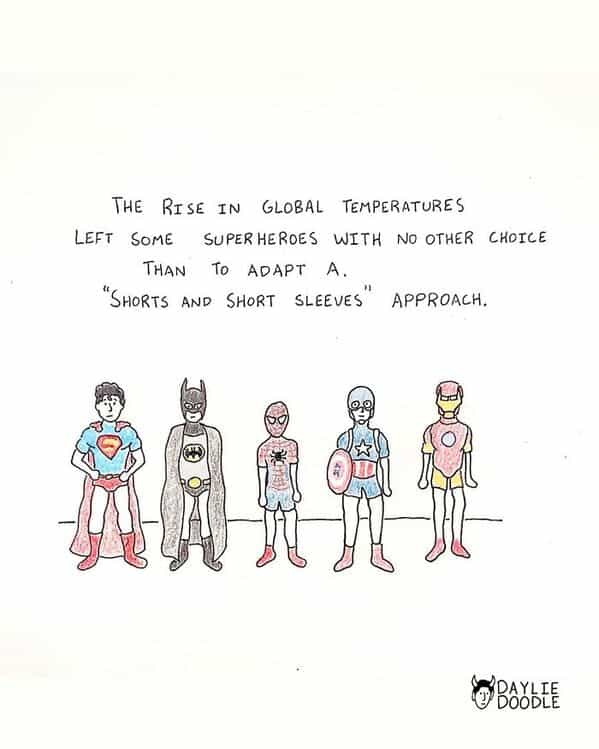 THE RISE IN GLOBAL TEMPERATURES
LEFT SOME SUPERHEROES WITH NO OTHER CHOICE
THAN TO ADAPT A.
"SHORTS AND SHORT SLEEVES" APPROACH.
DAYLIE
DOODLE